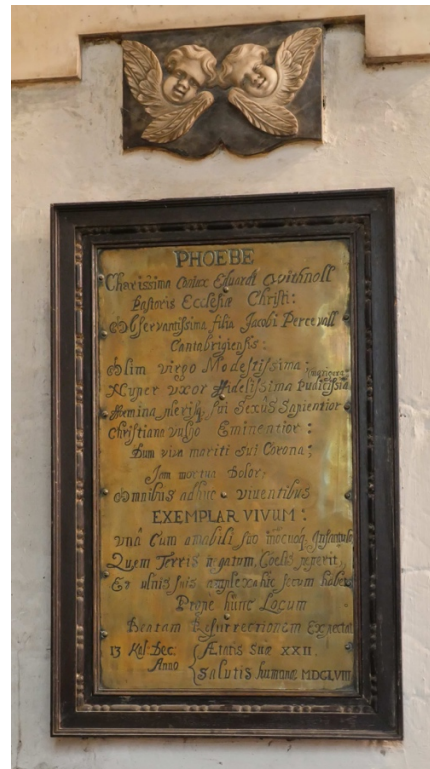 PHOEBE
Charissima Coniux Eduardi Withnoll
Pastoris Ecclesiæ Christi:
Observantissima filia Jacobi Percevall
Cantabrigiensis:
Olim virgo Modestissima:
Nuper uxor Fidelissima Pudicissia
Fæmina plerisq, sui Sexûs Sapientior
Christiana vulgo Eminentior:
Dum viva mariti sui Corona;
Jam mortua Dolor;
Omnibus adhuc viventibus
EXEMPLAR VIVUM:
unâ Cum amabili suo Infantulo
Quem Terris negatum, Coelis peperit,
Et ulnis suis amplexa hic secum habet
Prope hunc Locum
Beatam Resurrectionem Expectat
13 Kal: Dec: Ætatis Suæ XXII.
Anno Salutis humanæ MDCLVIII